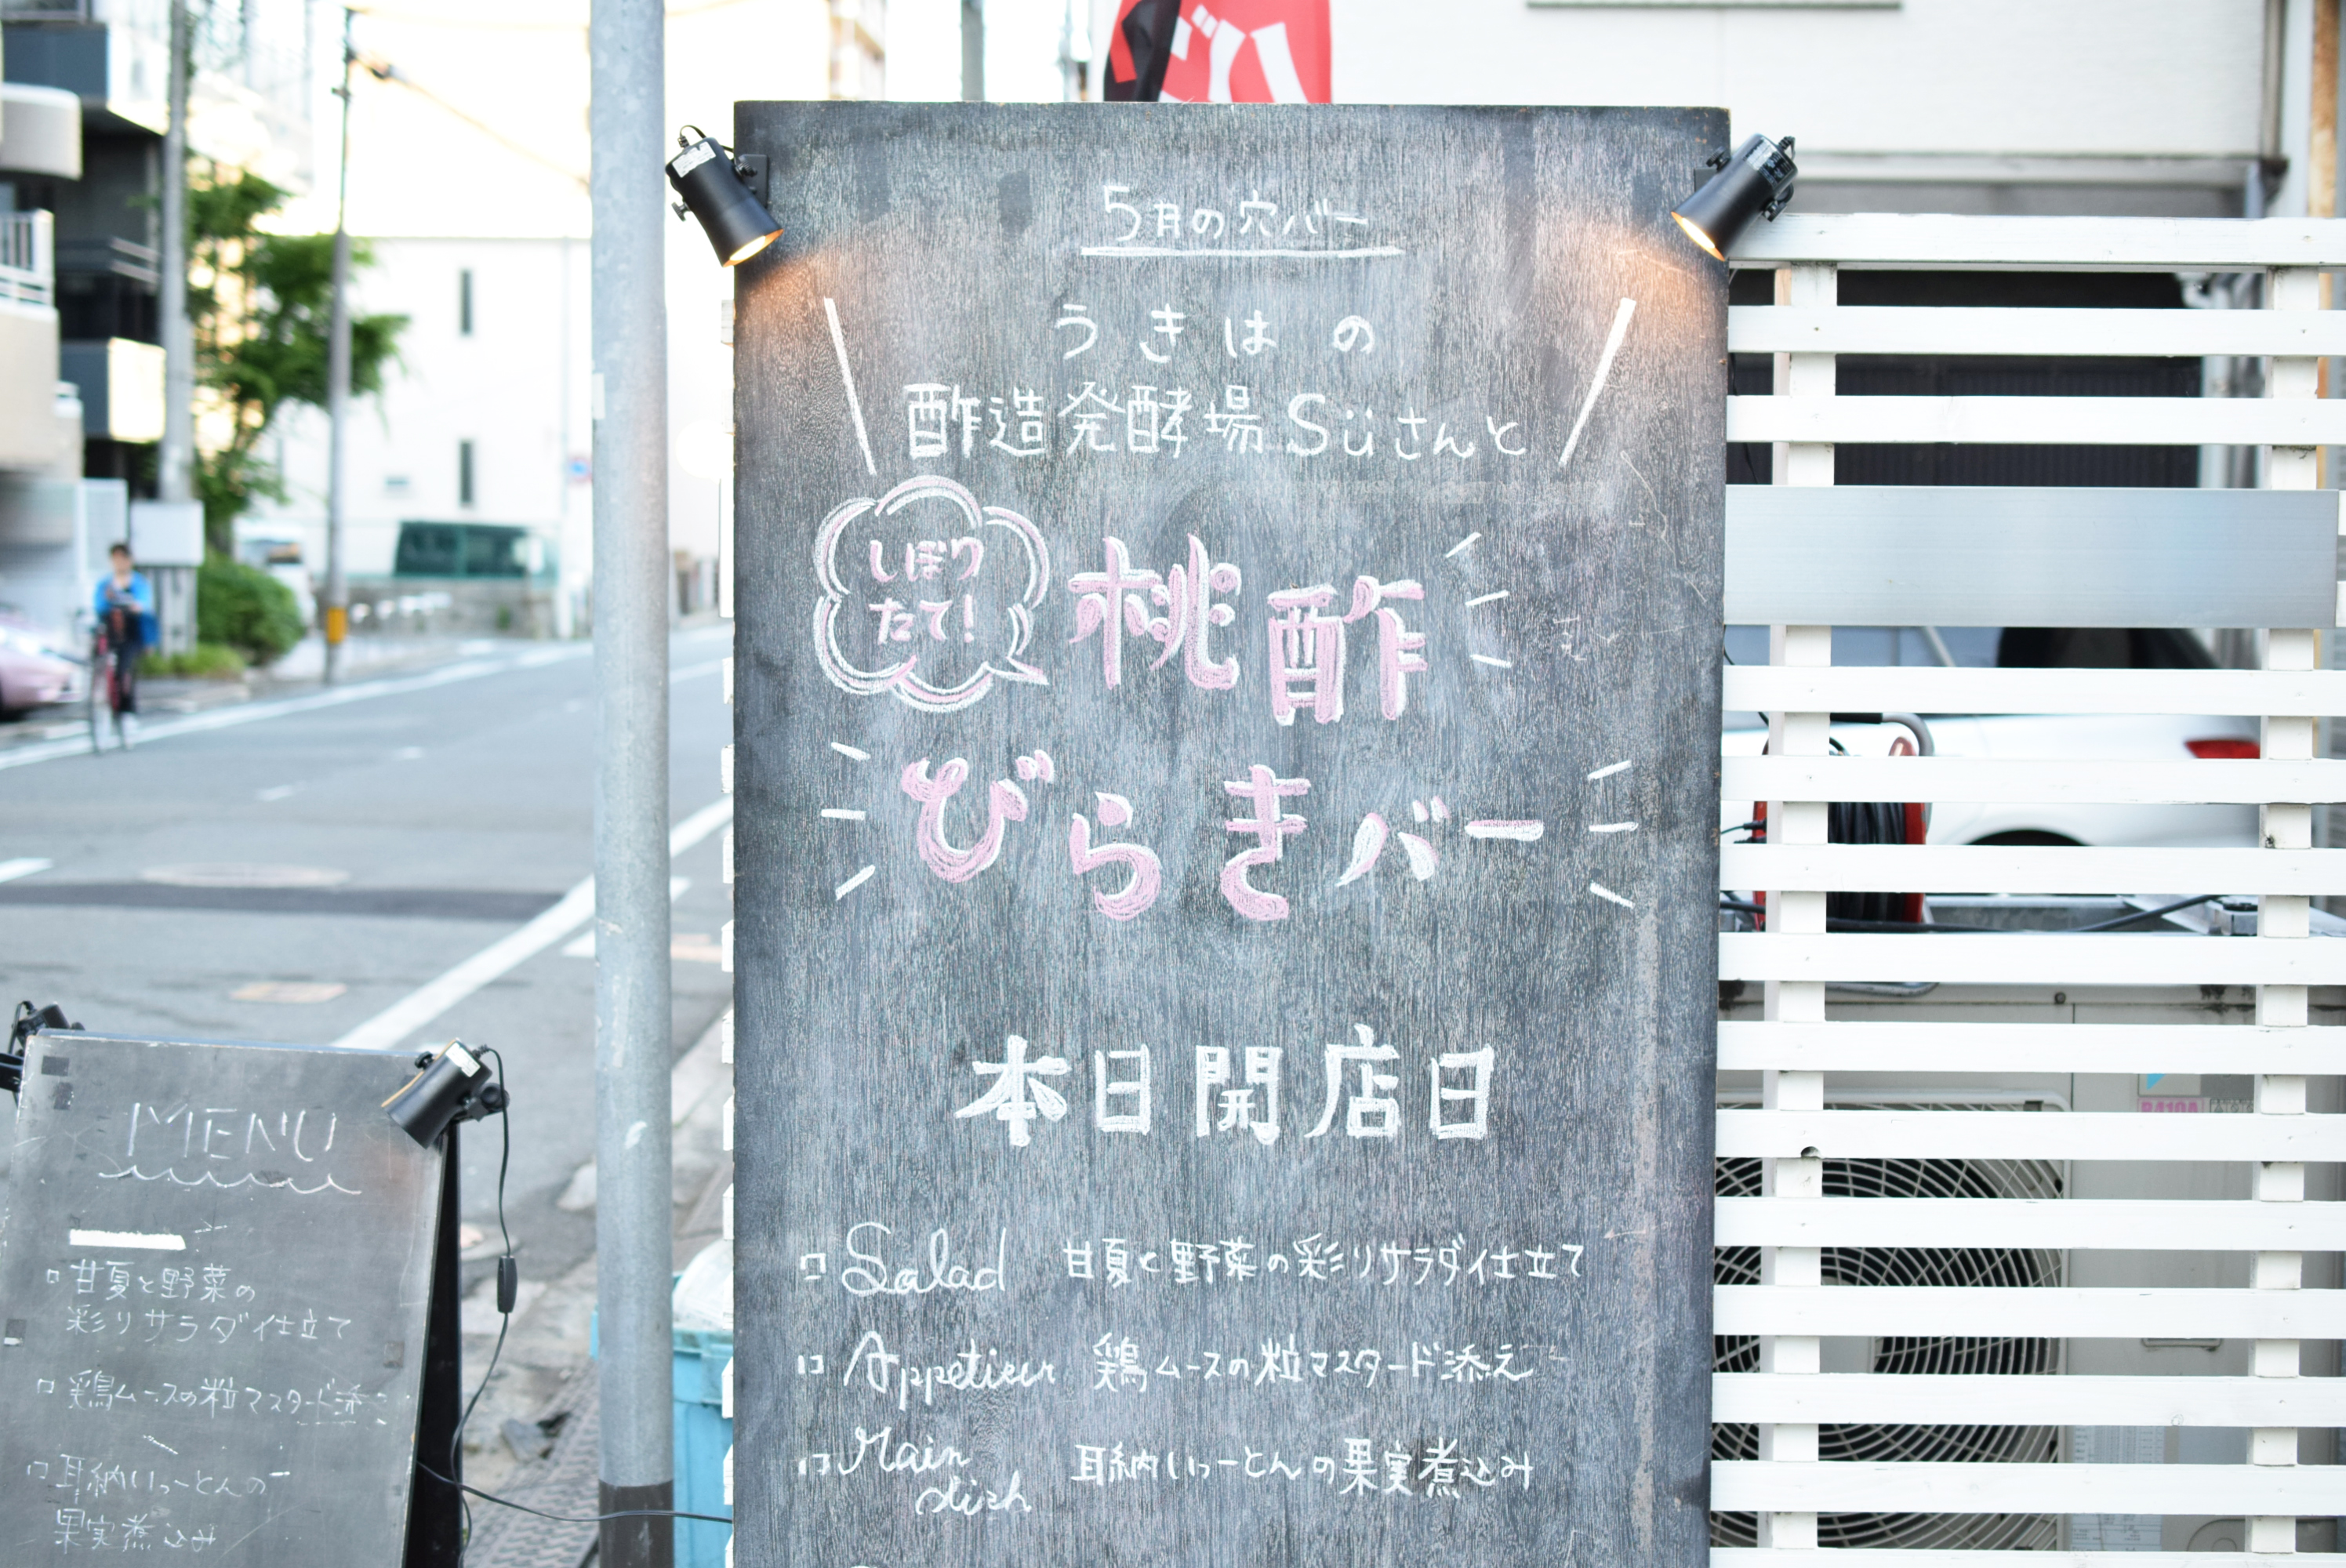 5月の穴バー
うきはの
酢造発酵場Süさんと
しぼり
たて!
桃酢
びらきバー
本日開店日
Salad 甘夏と野菜の彩りサラダ仕立て
Appetieur 鶏ムースの粒マスタード添え
Main 耳納いっーとんの果実煮込み
dish
MENU
甘夏と野菜の
彩りサラダ仕立て
鶏ムースの粒マスタード添
耳納いっーとんの
果実煮込み
R410A